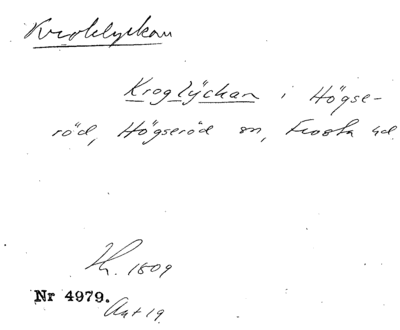 Kroklyckan
Kroglÿckan i Högse-
röd, Högseröd sn, Frosta hd.
Th. 1809
Nr 4979.
Akt 19